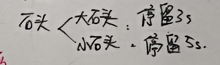 石头 大石头：停留3s
小石头：停留5s.